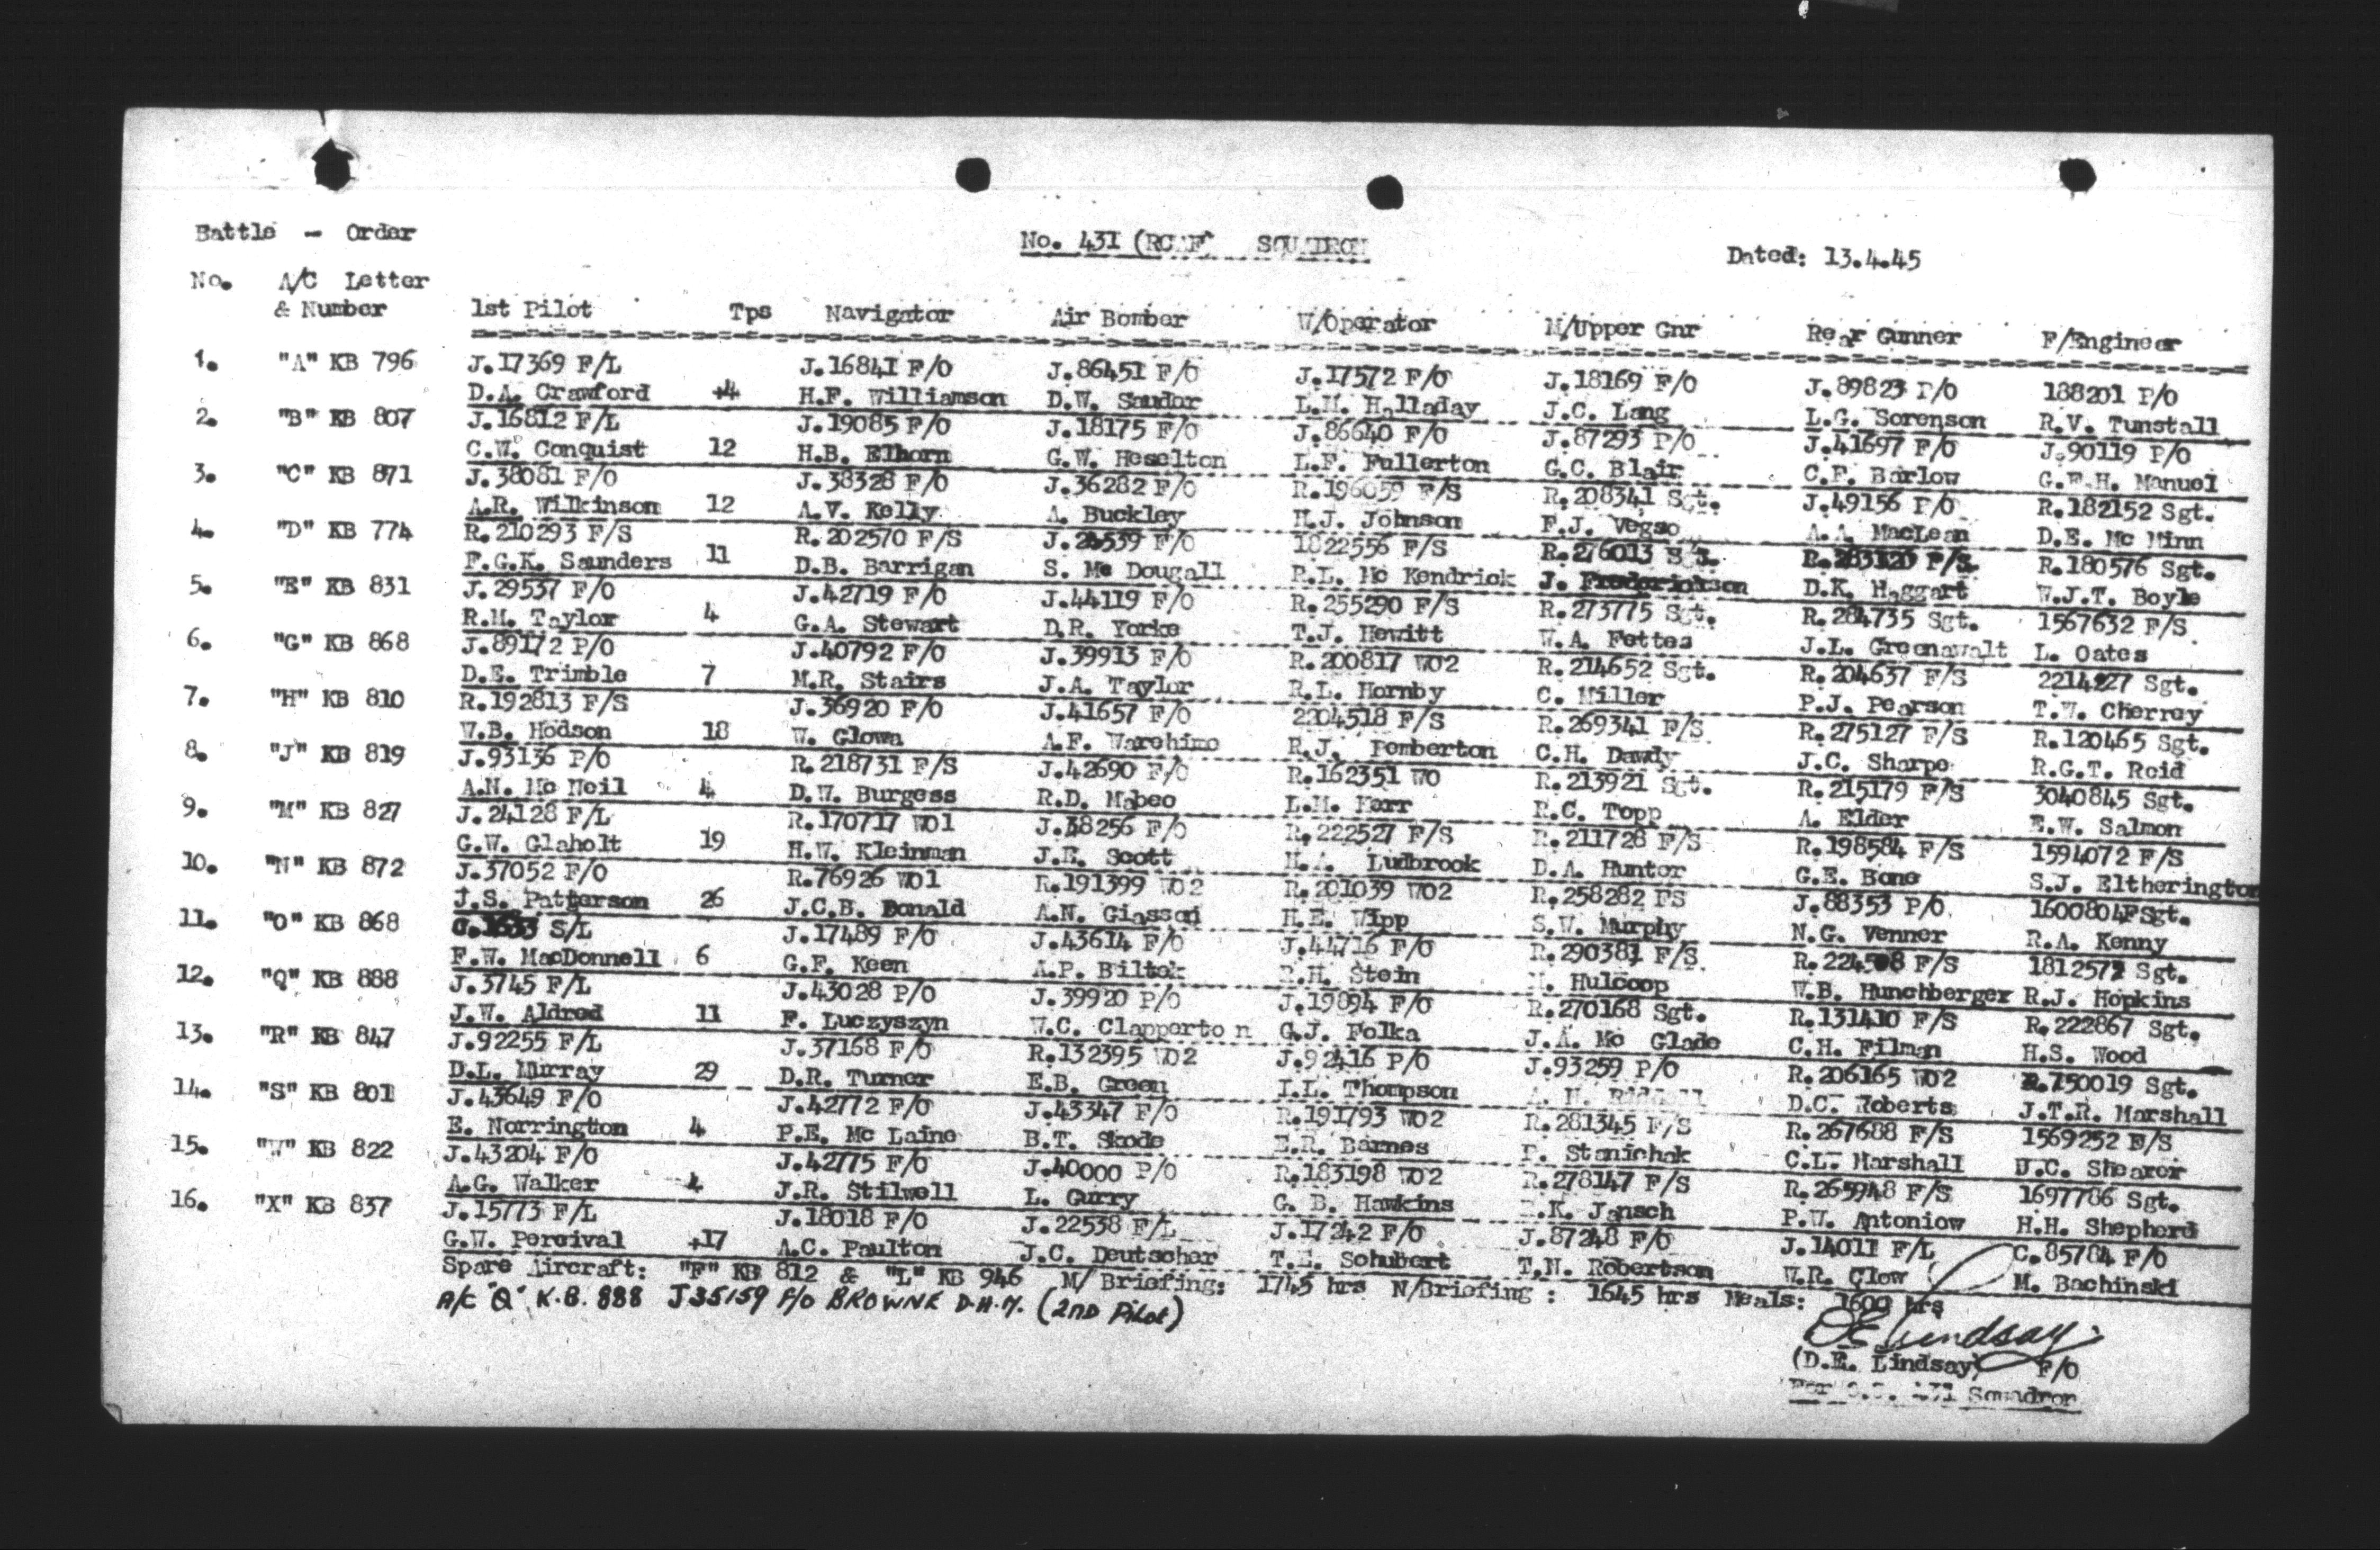 Battle - Order
No. 431 (RCAF) SQUADRON
Dated: 13.4.45
No. A/C Letter
& Number 1st Pilot Tps Navigator Air Bomber W/Operator M/Upper Gnr Rear Gunner F/Engineer
1. "A" KB 796 J.17369 F/L J.16841 F/O J.86451 F/O J.17572 F/O J.18169 F/O J.89823 P/O 188201 P/O
D.A. Crawford +4 H.F. Williamson D.W. Saudor L.H. Halladay J.C. Lang L.G. Sorenson R.V. Tunstall
2. "B" KB 807 J.16812 F/L J.19085 F/O J.18175 F/O J.86640 F/O J.87293 P/O J.41697 F/O J.90119 P/O
C.W. Conquist 12 H.B. Elhorn G.W. Heselton L.F. Fullerton G.C. Blair C.F. Barlow G.E.H. Manuel
3. "C" KB 871 J.38081 F/O J.38328 F/O J.36282 F/O R.196059 F/S R.208341 Sgt. J.49156 P/O R.182152 Sgt.
A.R. Wilkinson 12 A.V. Kelly A. Buckley H.J. Johnson F.J. Vegso A.A. MacLean D.E. Mc Minn
4. "D" KB 774 R.210293 F/S R.202570 F/S F/O 1822556 F/S R.276013 R.283120 F/S R.180576 Sgt.
F.G.K. Saunders 11 D.B. Barrigan S. Mc Dougall R.L. Mc Kendrick J. Frederickson D.K. Haggart W.J.T. Boyle
5. "E" KB 831 J.29537 F/O J.42719 F/O J.44119 F/O R.255290 F/S R.273775 Sgt. R.284735 Sgt. 1567632 F/S
R.M. Taylor 4 G.A. Stewart D.R. Yorke T.J. Hewitt W.A. Fettes J.L. Greenawalt L. Oates
6. "G" KB 868 J.89172 P/O J.40792 F/O J.39913 F/O R.200817 WO2 R.214652 Sgt. R.204637 F/S 2214227 Sgt.
D.E. Trimble 7 M.R. Stairs J.A. Taylor R.L. Hornby C. Miller P.J. Pearson T.W. Cherrey
7. "H" KB 810 R.192813 F/S J.36920 F/O J.41657 F/O 2204518 F/S R.269341 F/S R.275127 F/S R.120465 Sgt.
W.B. Hodson 18 W. Glowa A.F. Warehime R.J. Pemberton C.H. Dawdy J.C. Sharpe R.G.T. Reid
8. "J" KB 819 J.93136 P/O R.218731 F/S J.42690 F/O R.162351 WO R.213921 Sgt. R.215179 F/S 3040845 Sgt.
A.N. Mc Neil 4 D.W. Burgess R.D. Mabee L.M. R.C. Topp A. Elder E.W. Salmon
9. "M" KB 827 J.24128 F/L R.170717 WO1 J.38256 F/O R.222527 F/S R.211728 F/S R.198584 F/S 1594072 F/S
G.W. Glaholt 19 H.W. Kleinman J.E. Scott Ludbrook D.A. Hunter G.E. Bone S.J. Eltherington
10. "N" KB 872 J.37052 F/O R.76926 WO1 R.191399 WO2 R.201039 WO2 R.258282 FS J.88353 P/O 1600804 FSgt.
J.S. Patterson 26 J.C.B. Donald A.N. Giasson H.E. Wipp S.W. Murphy N.G. Venner R.A. Kenny
11. "O" KB 868 C.1633 S/L J.17489 F/O J.43614 F/O J.44716 F/O R.290381 F/S F/S 1812572 Sgt.
F.W. MacDonnell 6 G.F. Keen A.P. Biltek R.H. Stein Hulcoop W.B. Hunchberger R.J. Hopkins
12. "Q" KB 888 J.3745 F/L J.43028 P/O J.39920 P/O J.19894 F/O R.270168 Sgt. R.131410 F/S R.222867 Sgt.
J.W. Aldred 11 F. Luczyszyn W.C. Clapperto n G.J. Folka J.A. Mc Glade C.H. Filman H.S. Wood
13. "R" KB 847 J.92255 F/L J.37168 F/O R.132395 WO2 J.92416 P/O J.93259 P/O R.206165 WO2 R.750019 Sgt.
D.L. Murray 29 D.R. Turner E.B. Green I.L. Thompson A. H. Riddell D.C. Roberts J.T.R. Marshall
14. "S" KB 801 J.43649 F/O J.42772 F/O J.43347 F/O R.191793 WO2 R.281345 F/S R.267688 F/S 1569252 F/S
E. Norrington 4 P.E. Mc Laine B.T. Skode E.R. Barnes P. Stanichak C.L. Marshall D.C. Shearer
15. "W" KB 822 J.43204 F/O J.42775 F/O J.40000 P/O R.183198 WO2 R.278147 F/S R.265948 F/S 1697786 Sgt.
A.G. Walker 4 J.R. Stilwell L. Curry G. B. Hawkins Jansch P.W. Antoniow H.H. Shepherd
16. "X" KB 837 J.15773 F/L J.18018 F/O J.22538 F/L J.17242 F/O J.87248 F/O J.14011 F/L C.85784 F/O
G.W. Percival +17 A.C. Paulton J.C. Deutscher T.E. Schubert T.N. Robertson W.R. Clow M. Bachinski
Spare Aircraft: "F" KB 812 & "L" KB 946 M/Briefing: 1745 hrs N/Briefing : 1645 hrs Meals: 1600 hrs
A/C "Q" K.B. 888 J35159 F/O BROWNE D.H.M. (2ND Pilot)
DE Lindsay
(D.E. Lindsay) F/O
For O.C. 431 Squadron